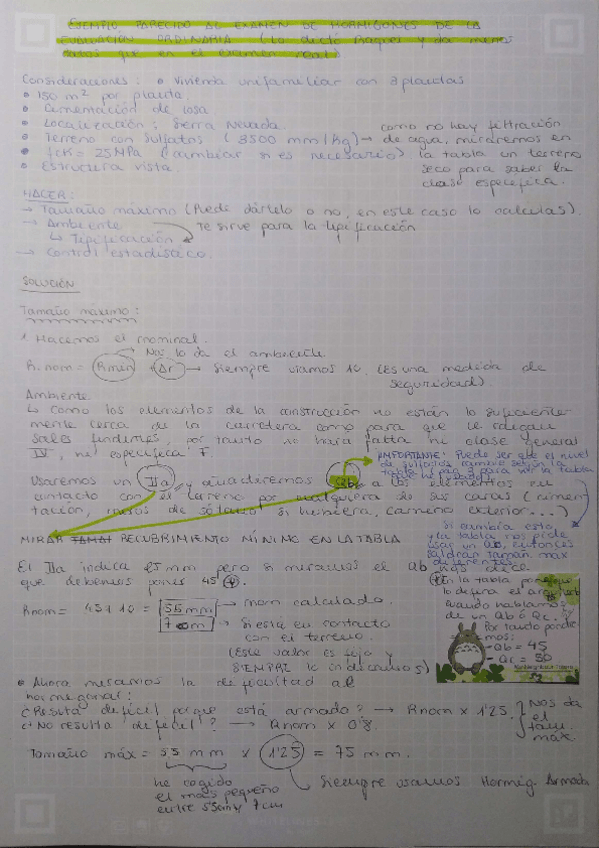 EJEMPLO PARECIDO AL EXAMEN DE HORMIGONES DE LA
EVALUACIÓN ORDINARIA (Lo dictó Raquel y da menos
datos que en el examen real)
Consideraciones: • Vivienda unifamiliar con 3 plantas
• 150 m² por planta
• Cimentación de losa
• Localización: Sierra Nevada
• Terreno con sulfatos (3500 mm/kg) → como no hay filtración de agua, miraremos en
• fck = 25MPa (cambiar si es necesario) la tabla un terreno
seco para saber la
clase específica.
• Estructura vista
HACER:
→ Tamaño máximo (Puede dártelo o no, en este caso lo calculas).
→ Ambiente te sirve para la tipificación
↳ Tipificación
→ Control estadísco.
SOLUCIÓN
Tamaño máximo:
1 Hacemos el nominal.
Nos lo da el ambiente
R. nom = Rmin Δr → Siempre usamos 10. (Es una medida de
seguridad).
Ambiente.
↳ Como los elementos de la construcción no están lo suficiente-
mente cerca de la carretera como para que le
sales fundentes, por tanto no hará falta ni clase general
IV, ni específica F.
Usaremos un IIa y añadiremos Qb a los elementos en
contacto con el terreno por cualquiera de sus caras (cimen-
tación, muros de sótano si hubiera, camino exterior...)
IMPORTANTE: Puede ser que el nivel
de sulfatos cambie según la
tabla
Si cambia esto,
y la tabla nos pide
usar un Qc, entonces
saldrán tamañ. máx
diferentes.
MIRAR RECUBRIMIENTO MÍNIMO EN LA TABLA
El IIa indica 15 mm pero si miramos el Qb nos dice
que debemos poner 45 ⊕.
⊕ En la tabla pone que
lo define el
cuando hablamos
de un Qb ó Qc.
Por tanto pondre-
mos:
- Qb = 45
- Qc = 50
Rnom = 45 + 10 = 55 mm → nom calculado.
70 mm → Si está en contacto
con el terreno.
(Este valor es fijo y
SIEMPRE lo indicamos)
• Ahora miramos la dificultad al
hormigonar:
¿Resulta difícil porque está armado? → Rnom x 1'25.
¿No resulta difícil? → Rnom x 0'8.
Nos da
el
tam.
máx.
Tamaño máx = 55 mm x 1'25 = 75 mm.
he cogido
el más pequeño
entre 55 y 7cm
Siempre usamos Hormig. Armado